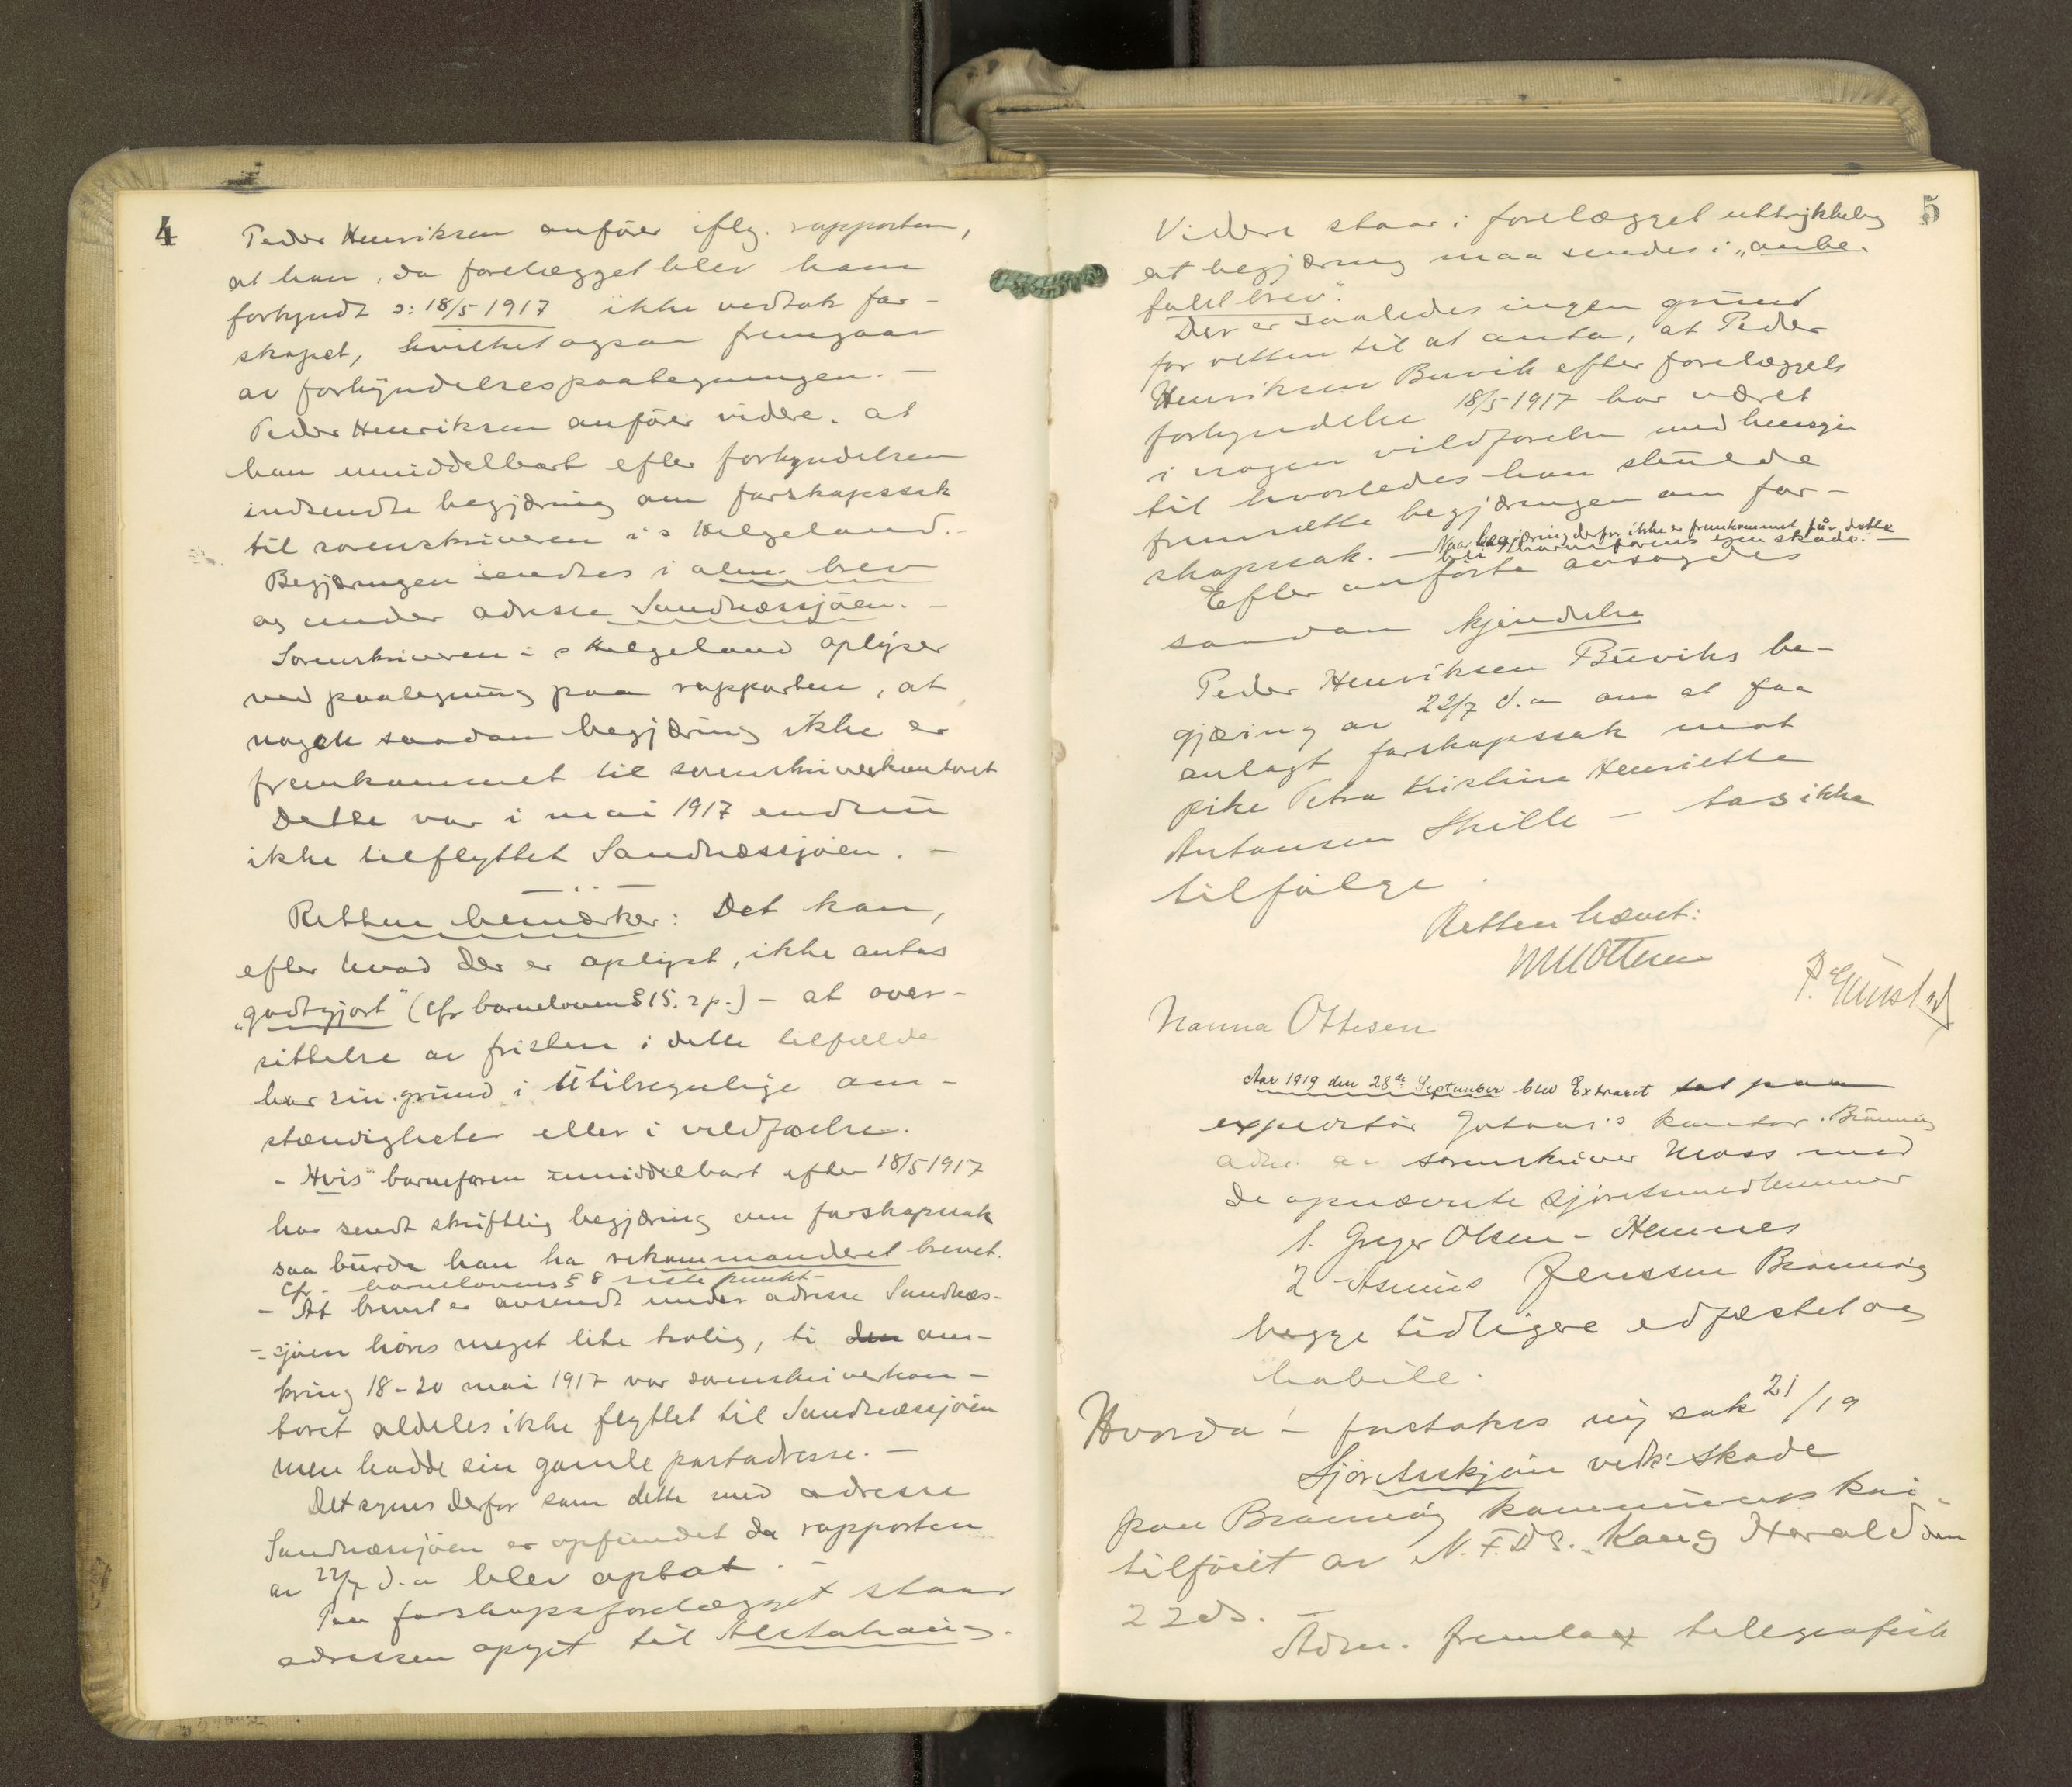 4
Peder Henriksen anfører iflg. rapporten,
at han, da forelægget blev ham
forkyndt ɔ: 18/5 1917 ikke vedtok far-
skapet, hvilket ogsaa fremgaar
av forkyndelsespaategningen. —
Peder Henriksen anfører videre, at
han umiddelbart efter forkyndelsen
indsendte begjæring om farskapssak
til sorenskriveren i s Helgeland. -
Begjæringen sendtes i alm. brev
og under adresse Sandnessjøen. -
Sorenskriveren i s Helgeland oplyser
ved paategning paa rapporten, at
nogen saadan begjæring ikke er
fremkommet til sorenskriverkontoret
Dette var i mai 1917 endnu
ikke tilflyttet Sandnæssjøen. -
Retten bemærker: Det kan,
efter hvad der er oplyst, ikke antas
„godtgjort" (cfr barneloven § 15. 2 p.) - at over-
sittelse av fristen i dette tilfælde
har sin grund i utilregnelige om-
stændigheter eller i vildfarelse.
- Hvis barnefaren umiddelbart efter 18/5 1917
har sendt skriftlig begjæring om farskapssak
saa burde han ha rekommanderet brevet.
cfr. barnelovens § 8 siste punkt -
- At brevet er avsendt under adresse Sandnæs-
- sjøen høres meget lite trolig, ti den om-
kring 18-20 mai 1917 var sorenskriverkon-
toret aldeles ikke flyttet til Sandnæssjøen
men hadde sin gamle postadresse. -
Det synes derfor som dette med adresse
Sandnæssjøen er opfundet da rapporten
av 22/7 d.a blev optat. -
Paa farskapsforelægget staar
adressen opgit til Alstahaug.
5
Videre staar i forelægget uttrykkelig
at begjæring maa sendes i „anbe-
falet brev".
Der er saaledes ingen grund
for retten til at anta, at Peder
Henriksen Buvik efter forelæggets
forkyndelse 18/5 1917 har været
i nogen vildfarelse med hensyn
til hvorledes han skulde
fremsætte begjæringen om far-
skapssak. — Naar begjæring derfor ikke er fremkommet får dette
bli barnefarens egen skade. —
Efter anførte avsagdes
saadan kjendelse
Peder Henriksen Buviks be-
gjæring av 22/7 d.a om at faa
anlagt farskapssak mot
pike Petra Kristine Henriette
Antonsen Skille - tas ikke
tilfølge.
Retten hævet:
Ottesen
Nanna Ottesen
Aar 1919 den 28de September blev Extraret sat paa
expeditør kontor. Brønnøy
adm. av sorenskriver Moss med
de opnævnte sjøretsmedlemmer
1. Greger Olsen - Hemnes
2 Asmus Jenssen Brønnøy
begge tidligere edfæstet og
habile.
Hvorda - foretokes ny sak 21/19
Sjøretsskjøn vedk. skade
paa Brønnøy kommunes kai
tilføiet av N.F.D.S. „Kong Harald" den
22ds.
Adm. fremla telegrafisk